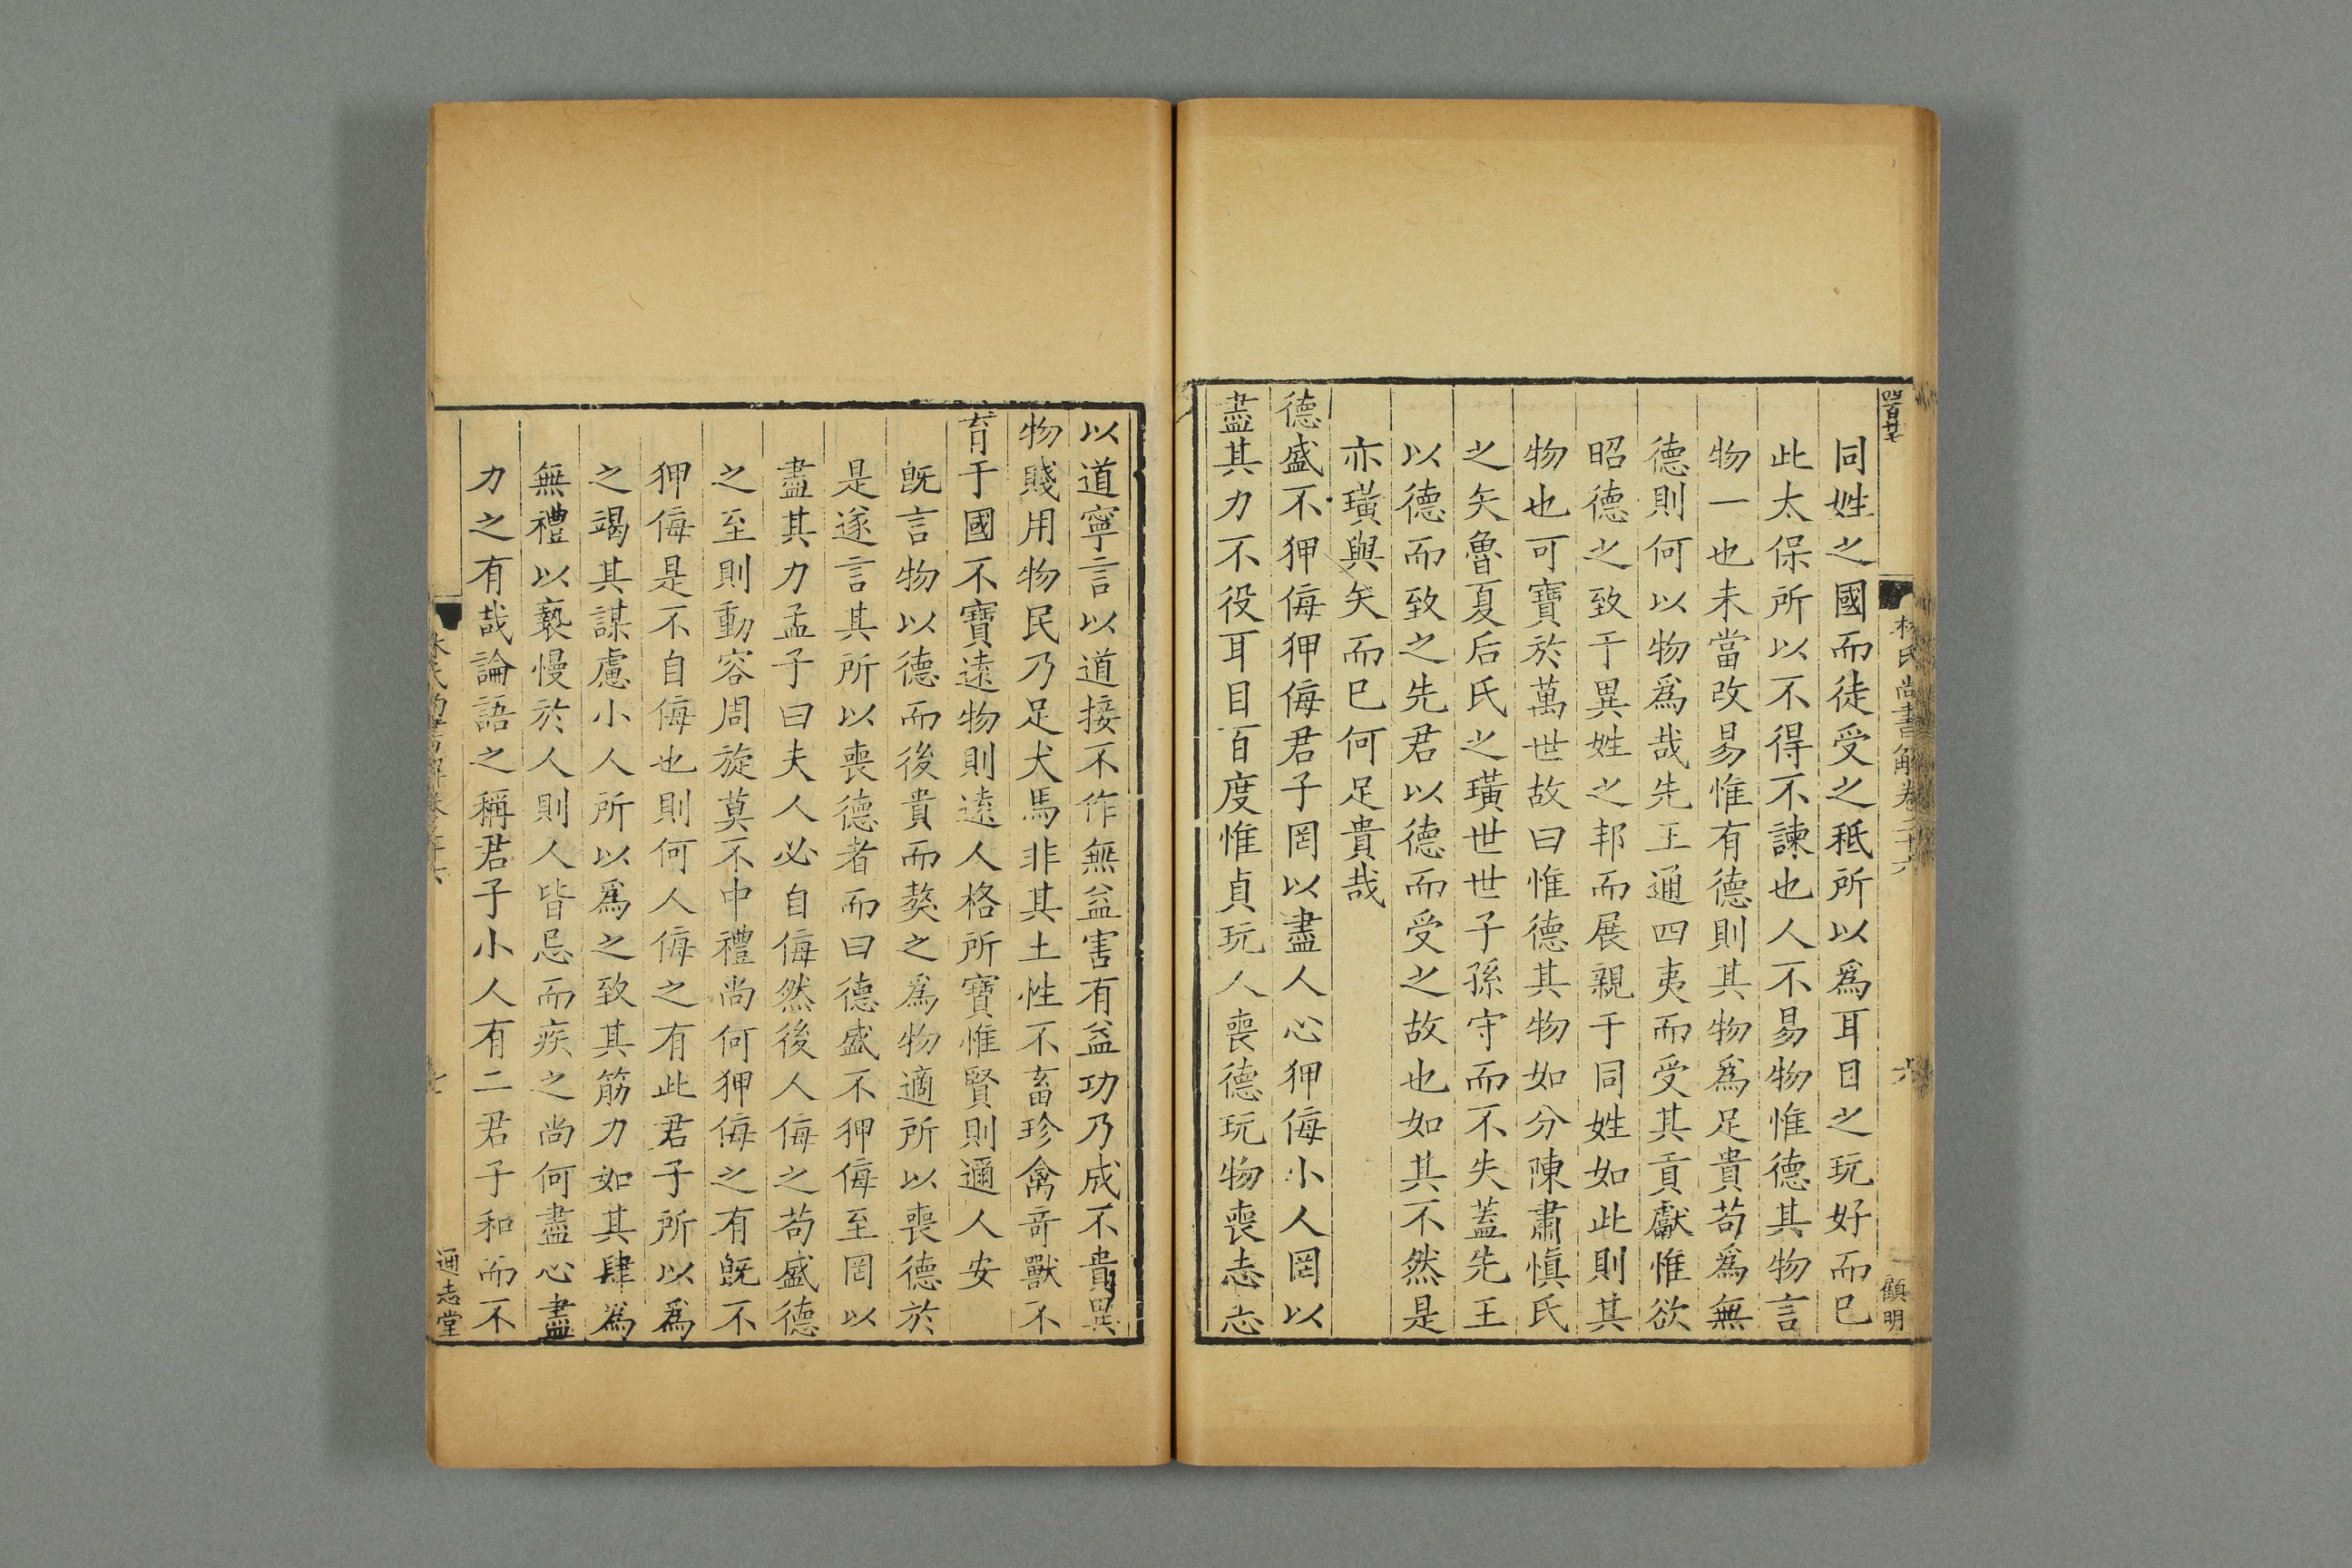 四百廿七
林氏尚書解卷二十六
六
顧明
同姓之國而徒受之秪所以爲耳目之玩好而已
此太保所以不得不諫也人不易物惟德其物言
物一也未當改易惟有德則其物爲足貴苟爲無
德則何以物爲哉先王通四夷而受其貢獻惟欲
昭德之致于異姓之邦而展親于同姓如此則其
物也可寶於萬世故曰惟德其物如分陳肅愼氏
之矢魯夏后氏之璜世世子孫守而不失蓋先王
以德而致之先君以德而受之故也如其不然是
亦璜與矢而已何足貴哉
德盛不狎侮狎侮君子罔以盡人心狎侮小人罔以
盡其力不役耳目百度惟貞玩人喪德玩物喪志志
以道寧言以道接不作無益害有益功乃成不貴異
物賤用物民乃足犬馬非其土性不畜珍禽奇獸不
育于國不寶遠物則遠人格所寶惟賢則邇人安
旣言物以德而後貴而獒之爲物適所以喪德於
是遂言其所以喪德者而曰德盛不狎侮至罔以
盡其力孟子曰夫人必自侮然後人侮之苟盛德
之至則動容周旋莫不中禮尚何狎侮之有旣不
狎侮是不自侮也則何人侮之有此君子所以爲
之竭其謀慮小人所以爲之致其筋力如其肆爲
無禮以褻慢於人則人皆忌而疾之尚何盡心盡
力之有哉論語之稱君子小人有二君子和而不
七
通志堂